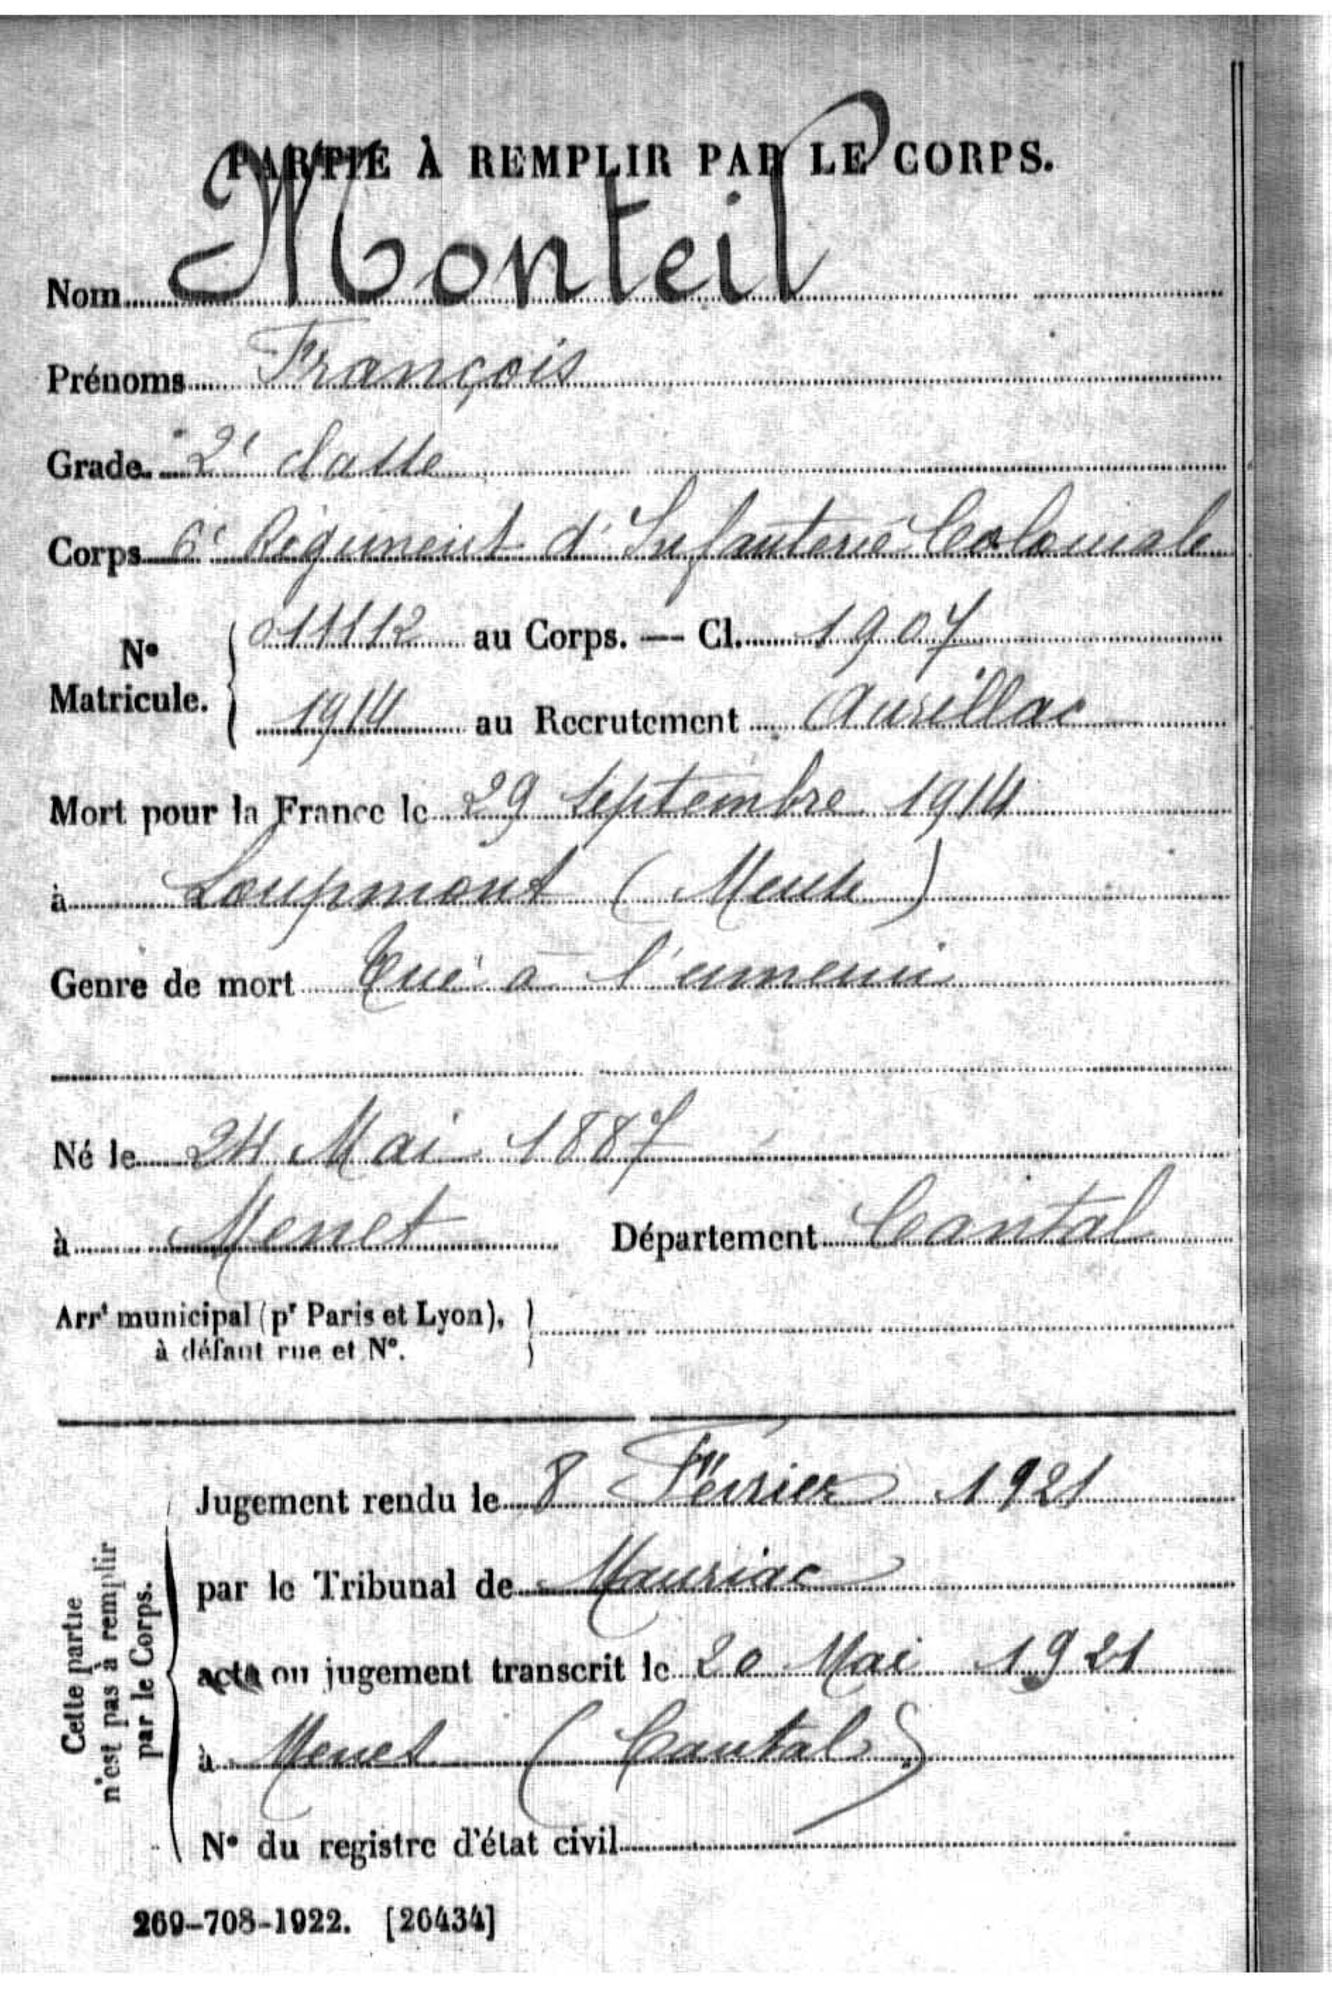 PARTIE À REMPLIR PAR LE CORPS.
Nom Monteil
Prénoms François
Grade 2e classe
Corps 6e Régiment d'Infanterie Coloniale
No Matricule. 011112 au Corps. — Cl. 1907
1914 au Recrutement Aurillac
Mort pour la France le 29 Septembre 1914
à Loupmont (Meuse)
Genre de mort Tué à l'ennemi
Né le 24 Mai 1887
à Menet Département Cantal
Arrt municipal (pr Paris et Lyon),
à défaut rue et No.
Cette partie
n'est pas à remplir
par le Corps.
Jugement rendu le 8 Février 1921
par le Tribunal de Mauriac
acte ou jugement transcrit le 20 Mai 1921
à Menet (Cantal)
No du registre d'état civil
269-708-1922. [26434]